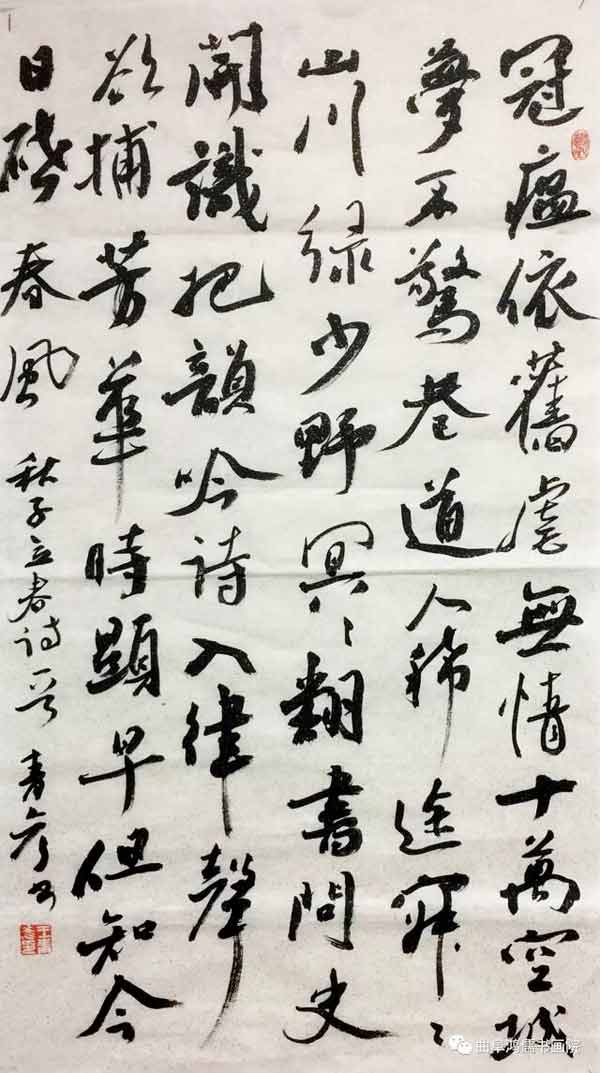 冠瘟依舊虐無情十萬空城
夢不驚巷道人稀途寂〻
山川绿少野冥〻翻書問史
開識把韻吟詩入律聲
欲捕芳華時顯早但知今
日啓春風
秋子立春诗一首 青彦书
曲阜鸿儒书画院